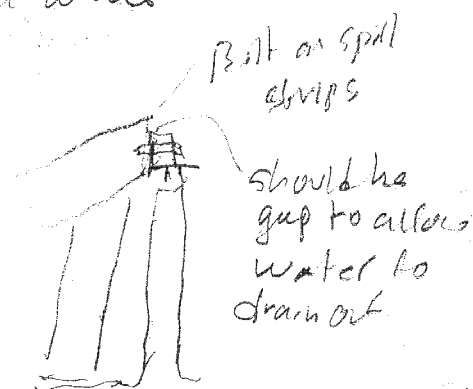 Built on spill
strips
should be
gap to allow
water to
drain out